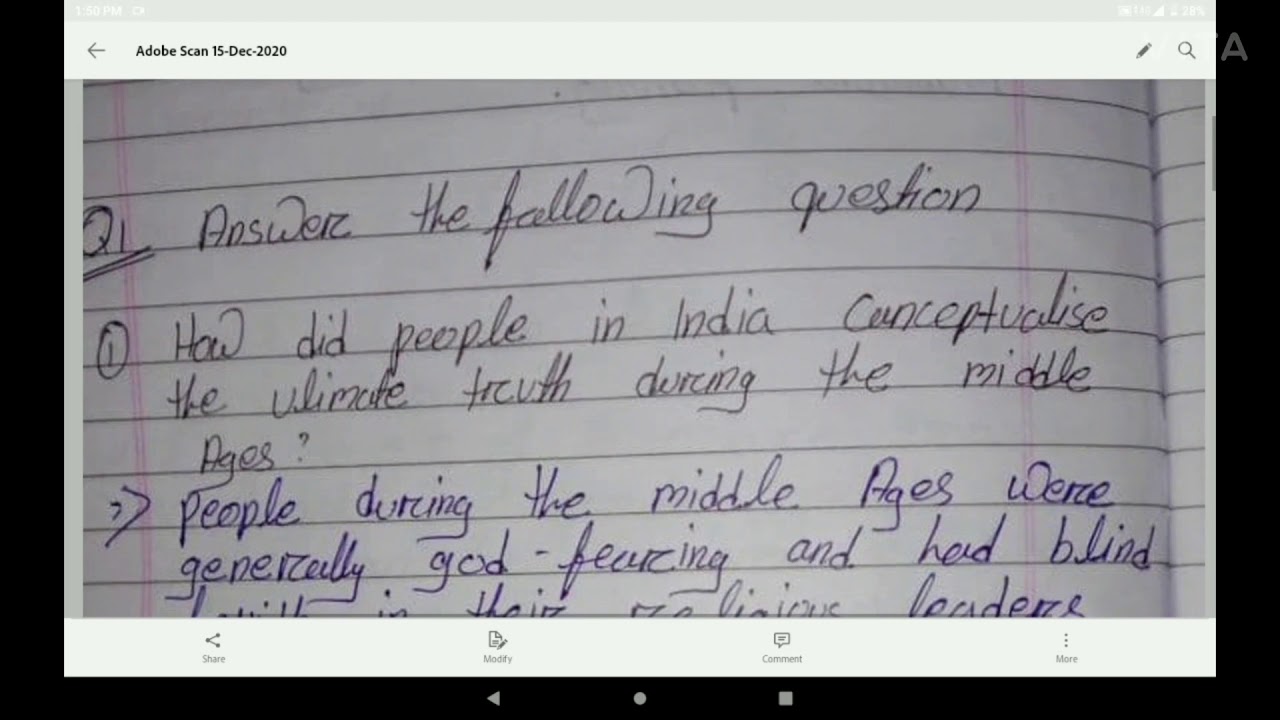 1:50 PM
28%
Adobe Scan 15-Dec-2020
Q1 Answer the following question
① How did people in India Conceptualise
the ulimate truth during the middle
Ages?
=> people during the middle Ages were
generally god-fearing and had blind
in their religious leaders
Share
Modify
Comment
More